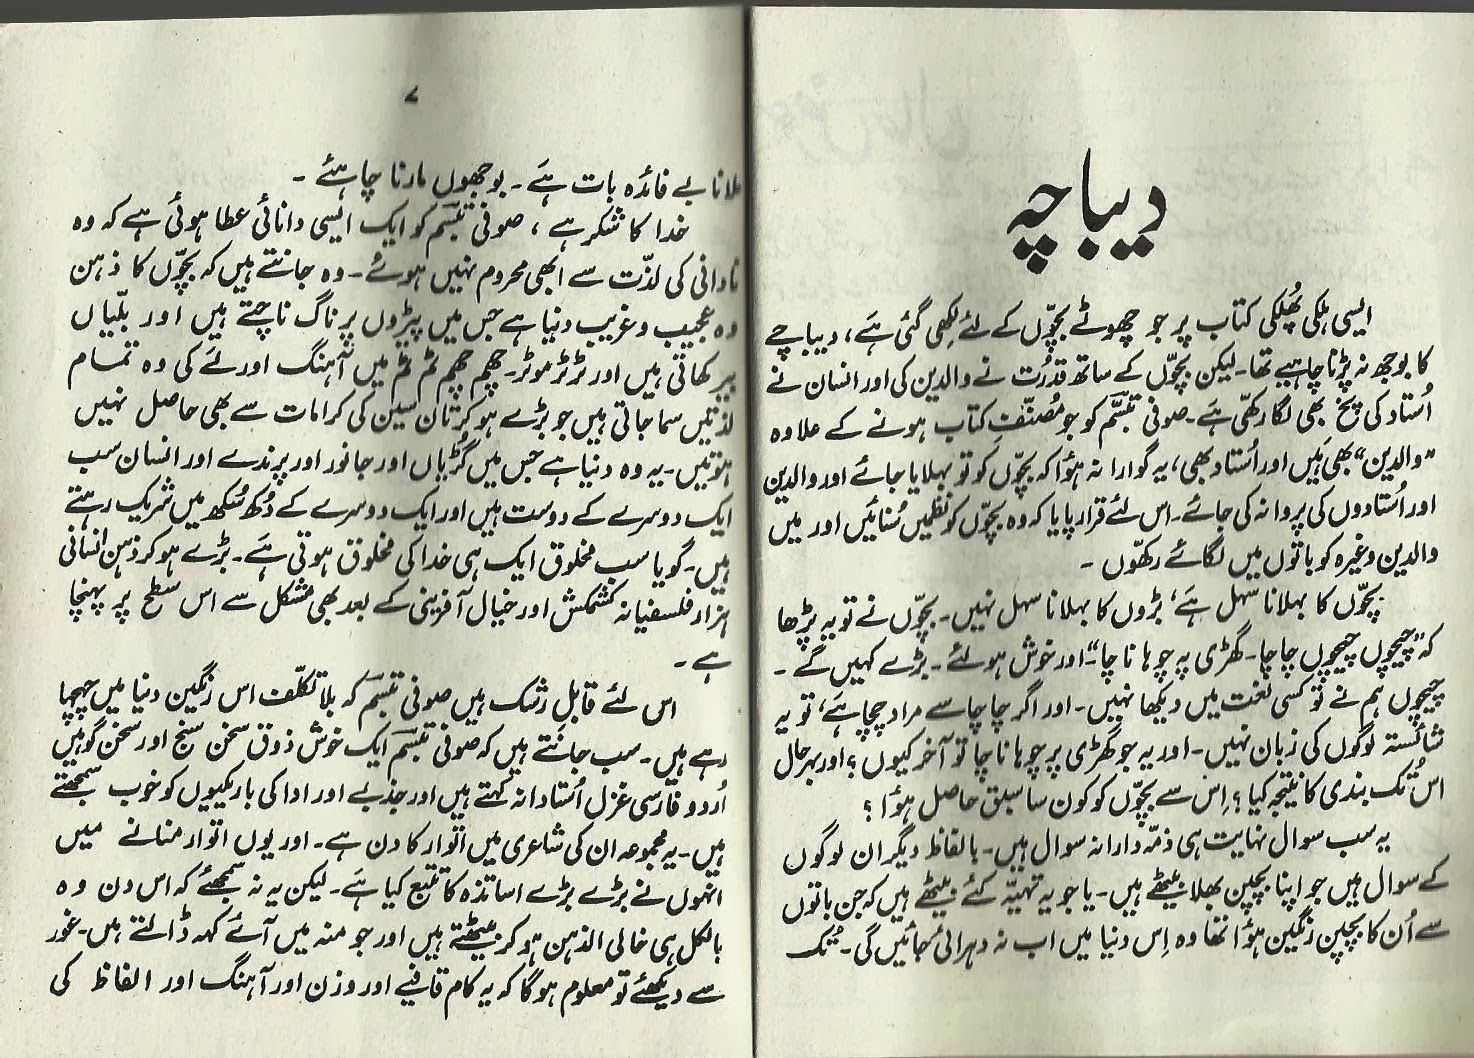 دیباچہ
ایسی ہلکی پھُلکی کتاب پر جو چھوٹے بچّوں کے لئے لکھی گئی ہَے، دیباچے
کا بوجھ نہ پڑنا چاہیے تھا۔ لیکن بچّوں کے ساتھ قدرُت نے والدین کی اور انسان نے
اُستاد کی پخ بھی لگا رکھّی ہَے۔ صوفی تبسّم کو جو مُصنّفِ کتاب ہونے کے علاوہ
”والدین“ بھی ہَیں اور اُستاد بھی، یہ گوارا نہ ہوُا کہ بچّوں کو تو بہلایا جائے اور والدین
اور اُستادوں کی پروا نہ کی جائے۔ اس لئے قرار پایا کہ وہ بچّوں کو نظمیں سُنائیں اور میں
والدین وغیرہ کو باتوں میں لگائے رکھّوں ۔
بچّوں کا بہلانا سہل ہَے، بڑوں کا بہلانا سہل نہیں۔ بچّوں نے تو یہ پڑھا
کہ ”چیچوں چیچوں چاچا۔ گھڑی پہ چوہا ناچا“۔ اور خوش ہو لئے۔ بڑے کہیں گے ۔
چیچوں ہم نے تو کسی لغت میں دیکھا نہیں۔ اور اگر چاچا سے مراد چچا ہَے، تو یہ
شائستہ لوگوں کی زبان نہیں۔ اور یہ جو گھڑی پر چوہا ناچا تو آخر کیوں ؟ اور بہر حال
اس تُک بندی کا نتیجہ کیا ؟ اِس سے بچّوں کو کون سا سبق حاصل ہوُا ؟
یہ سب سوال نہایت ہی ذمّہ دارانہ سوال ہیں۔ بالفاظ دیگر ان لوگوں
کے سوال ہیں جو اپنا بچپن بھلا بیٹھے ہیں۔ یا جو یہ تہیّہ کئے بیٹھے ہیں کہ جن باتوں
سے اُن کا بچپن رنگین ہوُا تھا وہ اِس دنیا میں اب نہ دہرائی جائیں گی۔ تُک
۷
ملانا بے فائدہ بات ہَے۔ بوجھوں مارنا چاہئے ۔
خدا کا شکر ہے ، صوفی تبسّم کو ایک ایسی دانائی عطا ہوئی ہے کہ وہ
نادانی کی لذّت سے ابھی محروم نہیں ہوئے۔ وہ جانتے ہیں کہ بچّوں کا ذہن
وہ عجیب و غریب دنیا ہے جس میں پیڑوں پر ناگ ناچتے ہیں اور بلّیاں
بیر کھاتی ہیں اور ٹرٹر موٹر۔ چھم چھم ٹم ٹم میں آہنگ اور لَے کی وہ تمام
لذتیں سما جاتی ہیں جو بڑے ہو کر تان سین کی کرامات سے بھی حاصل نہیں
ہوتیں۔ یہ وہ دنیا ہے جس میں گڑیاں اور جانور اور پرندے اور انسان سب
ایک دوسرے کے دوست ہیں اور ایک دوسرے کے دُکھ سُکھ میں شریک رہتے
ہیں۔ گویا سب مخلوق ایک ہی خدا کی مخلوق ہوتی ہَے۔ بڑے ہو کر ذہن انسانی
ہزار فلسفیانہ کشمکش اور خیال آفرینی کے بعد بھی مشکل سے اس سطح پر پہنچا
ہے ۔
اس لئے قابلِ رشک ہیں صوفی تبسّم کہ بلا تکلّف اس رنگین دنیا میں چہچہا
رہے ہیں۔ سب جانتے ہیں کہ صوفی تبسّم ایک خوش ذوق سخن سنج اور سخن گو ہیں
اُردو فارسی غزل اُستادانہ کہتے ہیں اور جذبے اور ادا کی باریکیوں کو خوب سمجھتے
ہیں۔ یہ مجموعہ ان کی شاعری میں اتوار کا دن ہے۔ اور یوں اتوار منانے میں
انہوں نے بڑے بڑے اساتذہ کا تتبع کیا ہَے۔ لیکن یہ نہ سمجھئے کہ اس دن وہ
بالکل ہی خالی الذہن ہو کر بیٹھتے ہیں اور جو منہ میں آئے کہہ ڈالتے ہیں۔ غور
سے دیکھئے تو معلوم ہوگا کہ یہ کام قافیے اور وزن اور آہنگ اور الفاظ کی